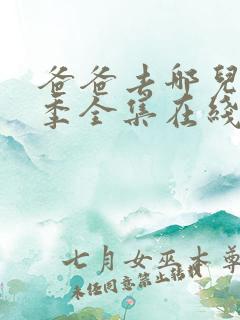 爸爸去哪兒
季全集在綫
七月女巫本尊
未任同意禁止转载